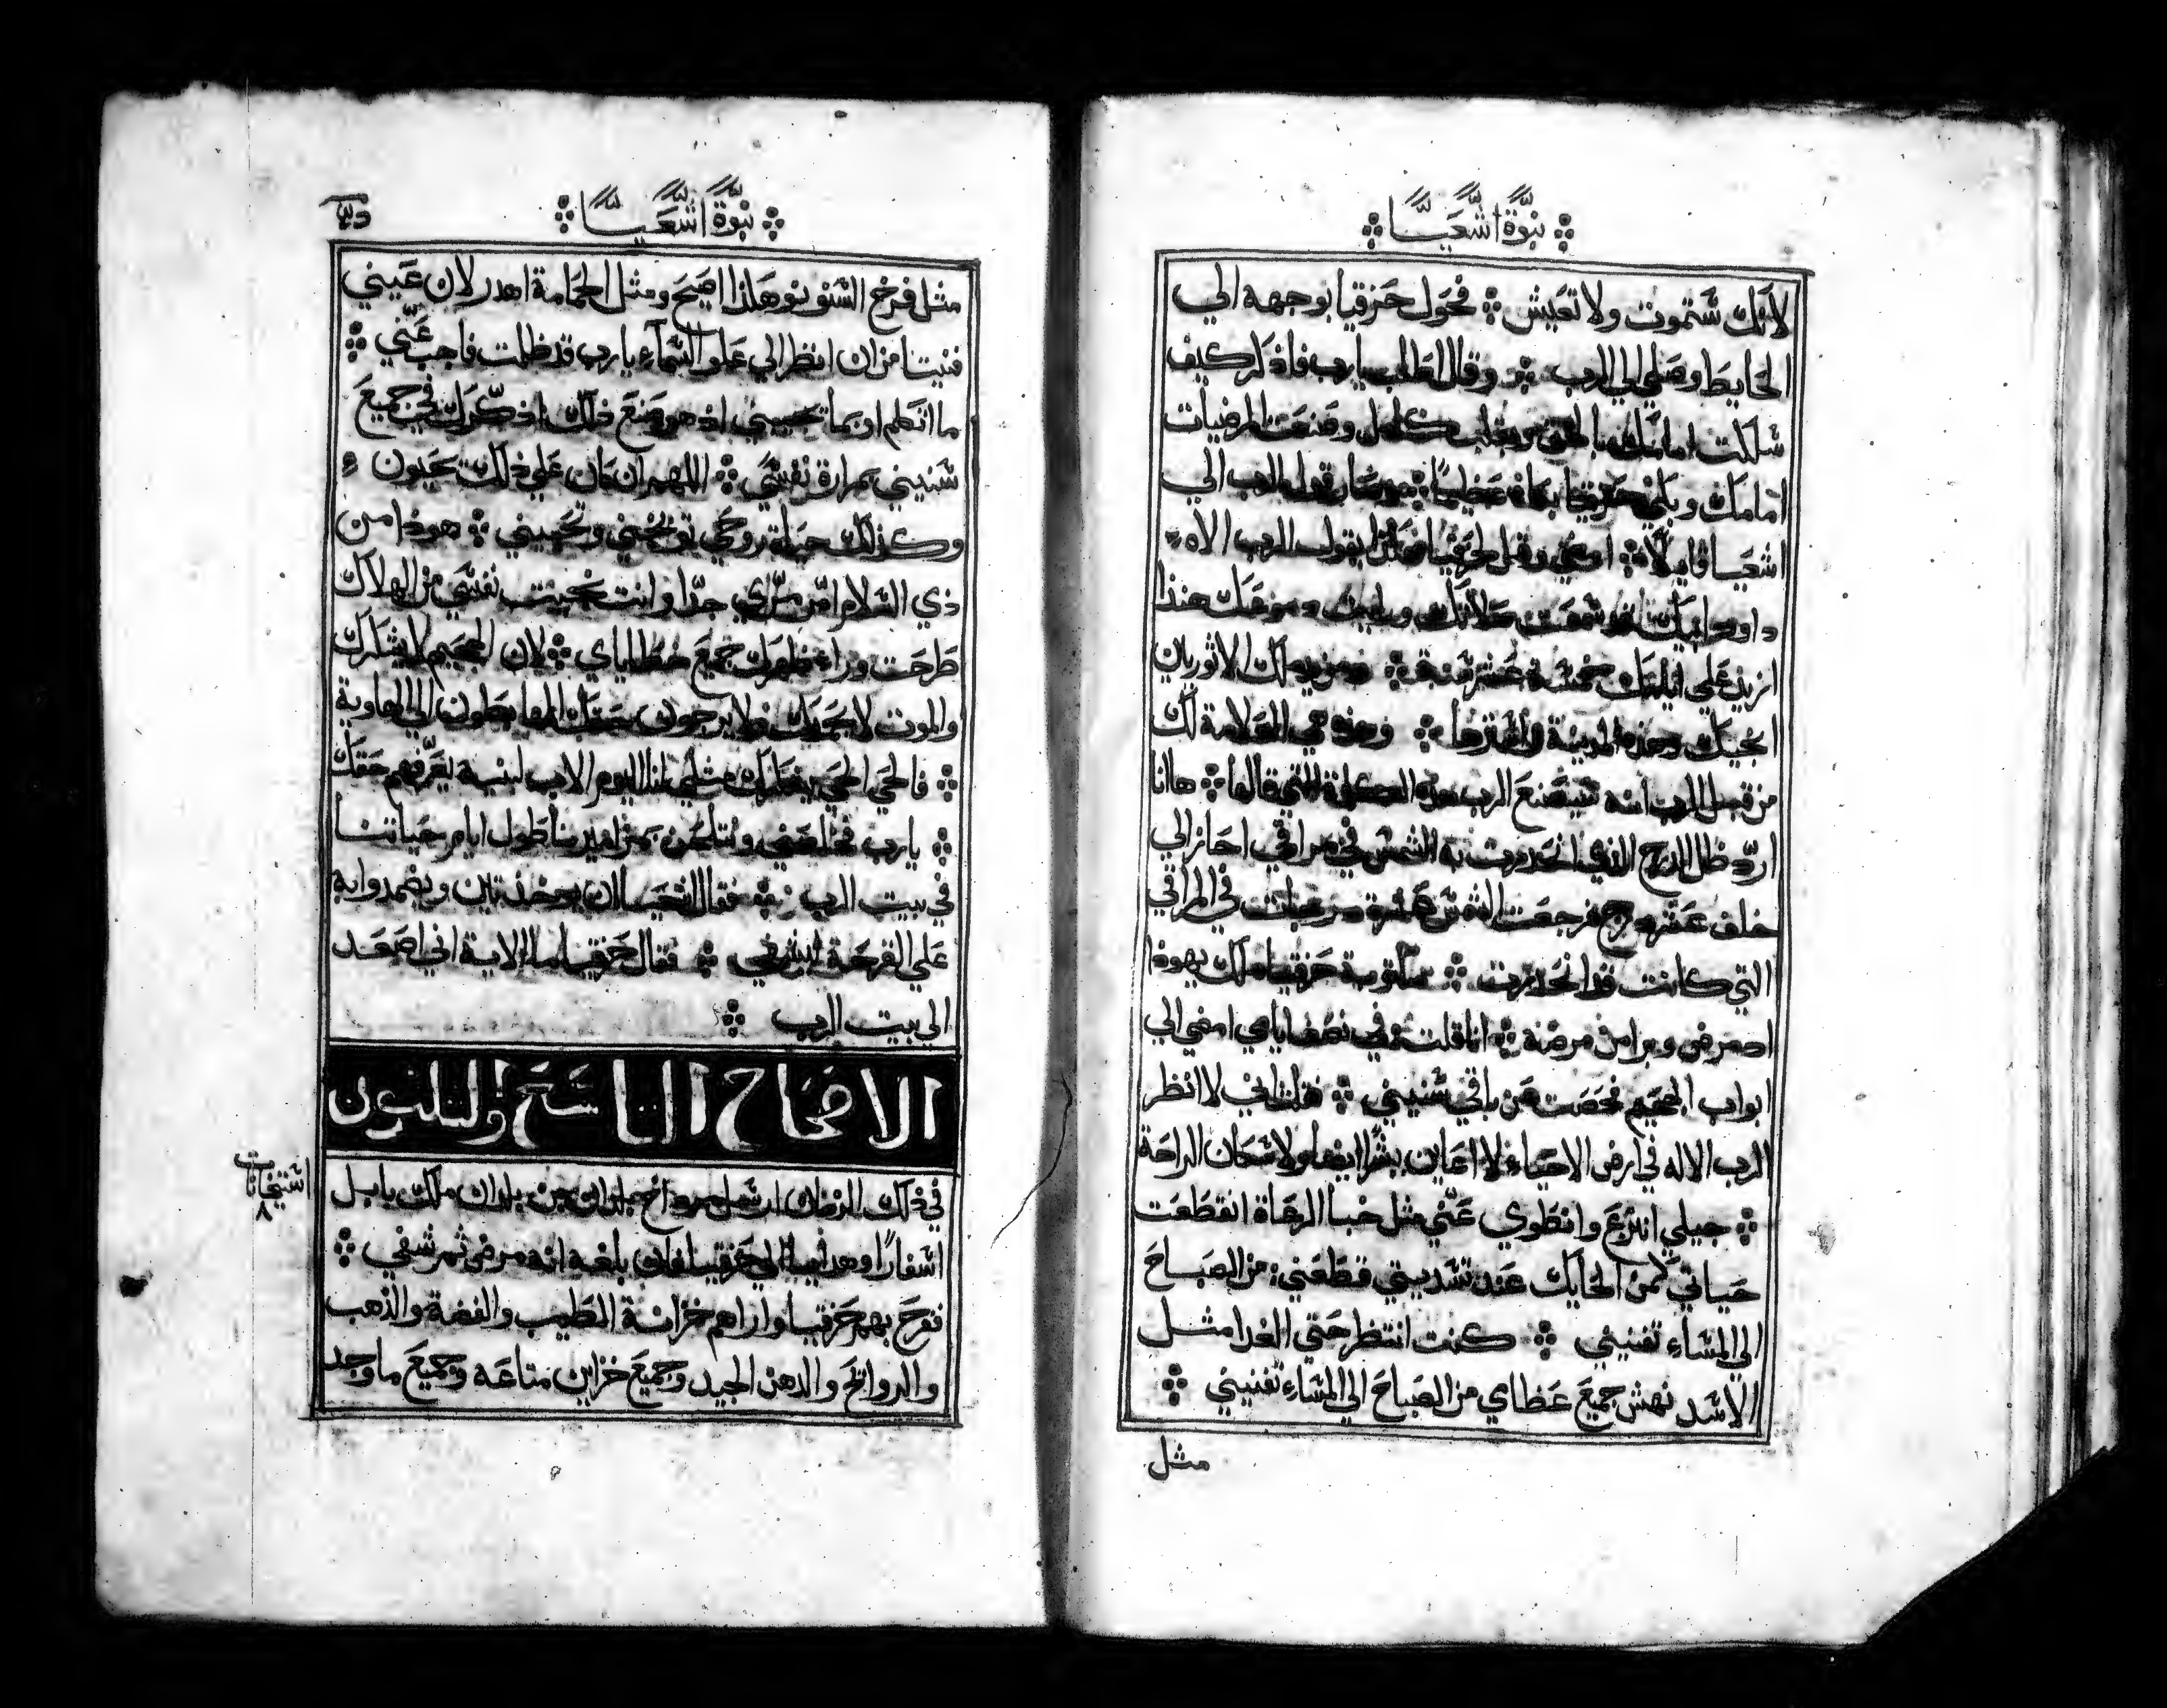 نبوة اشعيا
لانك ستموت ولا تعيش فحول حزقيا بوجهه الي
الحايط وصلي الي الرب وقال اطلب يارب فاذكر كيف
سلكت امامك بالحق وبقلب كامل وصنعت المرضيات
امامك وبكي حزقيا بكاءً عظيمًا وصار قول الرب الي
اشعيا قايلًا امضي وقل لحزقيا هكذا يقول الرب الاه
داود ابيك قد سمعت صلاتك ورايت دموعك هنذا
ازيد علي ايامك خمسة عشر سنة ومن يد ملك الاثوريان
انجيك وهذه المدينة واسترها وهذه هي العلامة لك
من قبل الرب انه سيصنع الرب هذه الكلمة التي قالها هاانا
اردّ ظل الدرج الذي انحدرت به الشمس في مراقي احاز الي
خلف عشر درج فرجعت الشمس عشرة درجات في المراقي
التي كانت قد انحدرت مكتوبة حزقيا ملك يهوذا
اذ مرض وبرا من مرضه انا قلت في نصف ايامي امضي الي
ابواب الجحيم فحصت عن باقي سنيني قلت اني لا انظر
الرب الاله في ارض الاحياء ولا اعاين بشرًا ايضا ولا سكان الراحة
جيلي انتزع وانطوي عني مثل خبا الرعاة انقطعت
حياتي كمن الحايك عند تسديتي قطعني من الصباح
الي المساء تفنيني كنت انتظر حتي الغدا مثل
الاسد نهش جميع عظامي من الصباح الي المساء تفنيني
مثل
نبوة اشعيا
مثل فرخ السنونو هكذا اصيح ومثل الحمامة اهدر لان عيني
فنيتا من ان انظر الي علو السماء يارب قد ظلمت فاجب عني
ما اتكلم او بما تجيبني اذ هو صنع ذلك اذكرك في جميع
سنيني بمرارة نفسي اللهم ان كان علي ذلك يحيون
وكذلك حياة روحي توبخني وتحييني هوذا من
ذي السلام امر من مري جدًا وانت نجيت نفسي من الهلاك
طرحت وراء ظهرك جميع خطاياي لان الجحيم لا يشكرك
والموت لا يحمدك ولا يرجون حقك الهابطون الي الهاوية
فالحي الحي يشكرك مثلي هذا اليوم الاب لبنيه يعرفهم حقك
يارب خلصني ونتلحن بمزاميرنا طول ايام حياتنا
في بيت الرب فقال اشعيا ان يوخذ تين ويضمدوا به
علي القرحة ليشفي فقال حزقيا ما الاية اني اصعد
الي بيت الرب
الاصحاح التاسع والثلاثون
استيخانات
٨
في ذلك الزمان ارسل مرداخ بلدان بن بلدان ملك بابل
اسفارًا وهدايا الي حزقيا لان بلغه انه مرض ثم شفي
ففرح بهم حزقيا واراهم خزانة الطيب والفضة والذهب
والروايح والدهن الجيد وجميع خزاين متاعه وجميع ما وجد